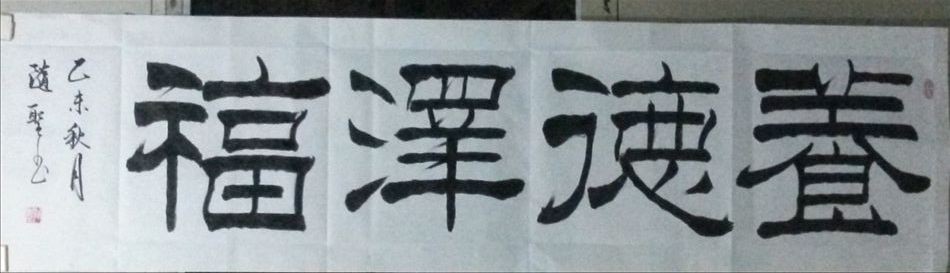 養德澤福
乙未秋月
隨聖书